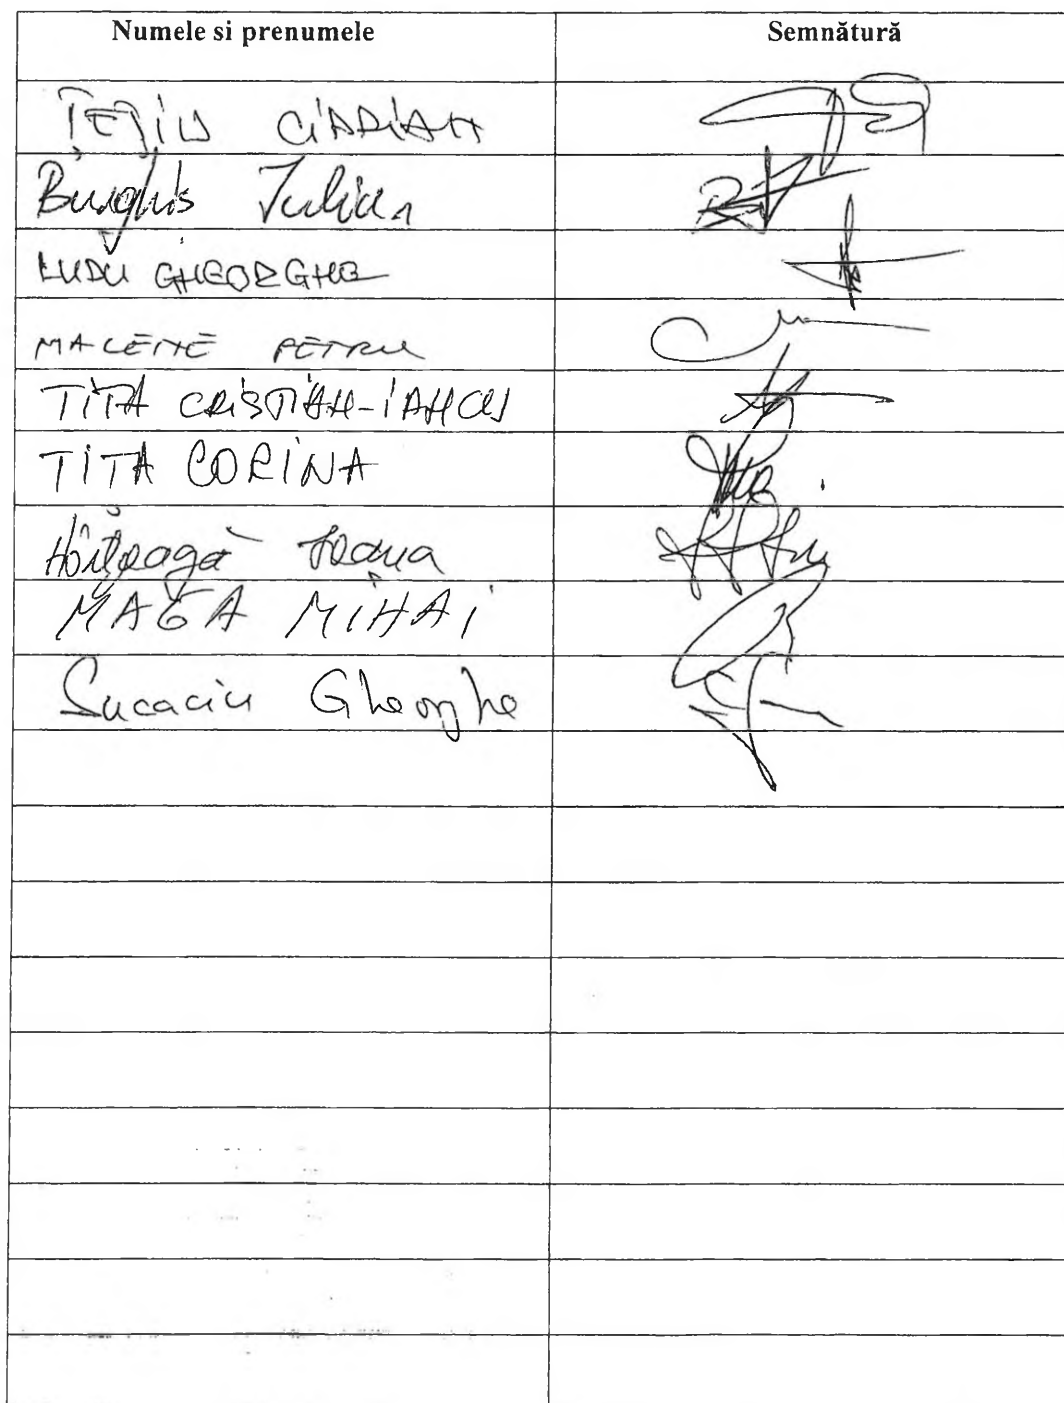 Numele si prenumele Semnătură
ȚEȚIU CIPRIAN
Burghis Iulian
LUDU GHEORGHE
MALENE PETRU
TITA CRISTIAN-IANCU
TITA CORINA
Ioana
MAGA MIHAI
Sucaciu Gheorghe